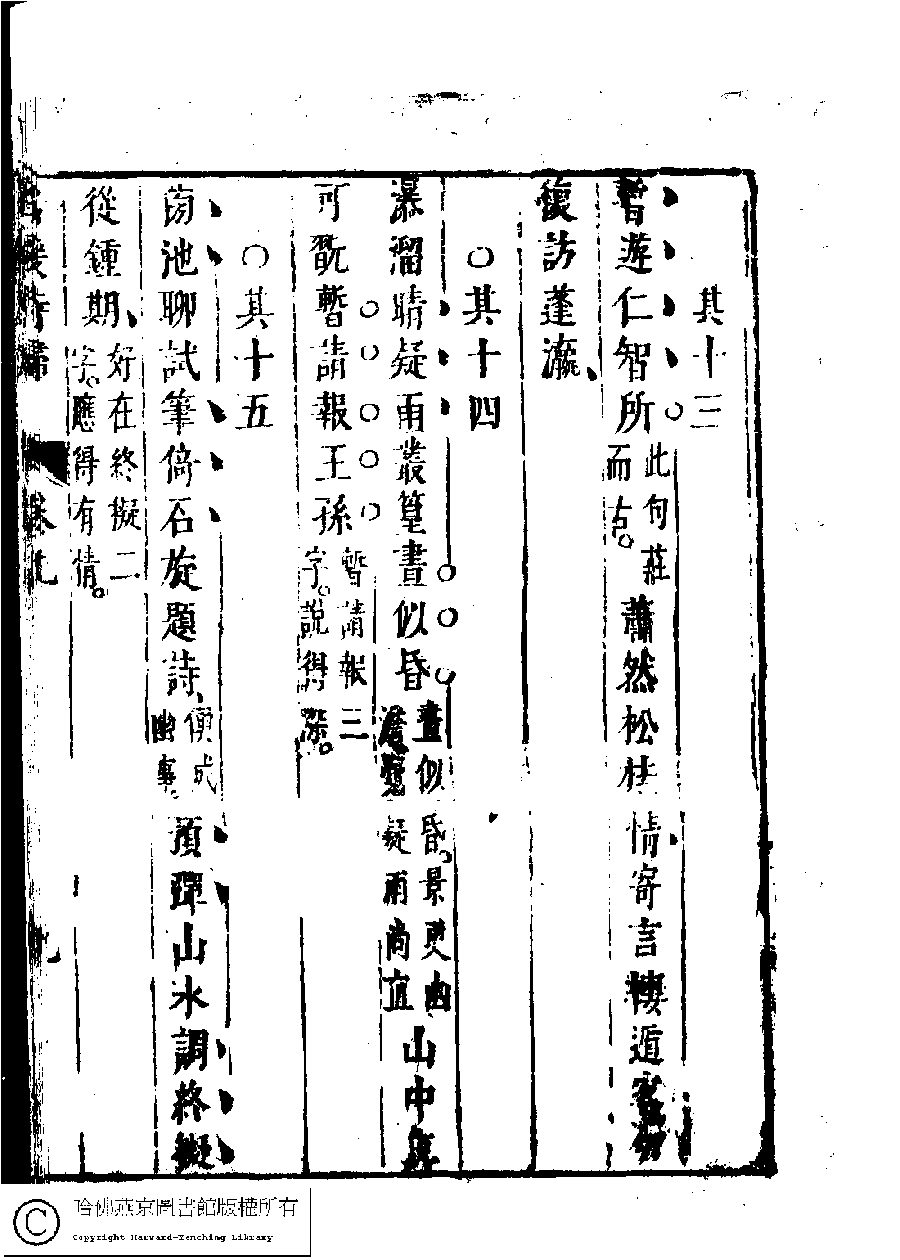 其十三
暫遊仁智所此句莊而古。蕭然松桂情寄言棲遁客
復訪蓬瀛、
〇其十四
瀑溜晴疑雨叢篁晝似昏晝似昏。景更幽疑雨尚宜山中
可翫暫請報王孫暫請報三字。說得深。
〇其十五
茵池聊試筆倚石旋題詩、便成幽事。預彈山水調終擬
從鍾期、好在終擬二字。應得有情。
詩歸
卷九
九
哈佛燕京圖書館版權所有
Copyright Harvard-Yenching Library